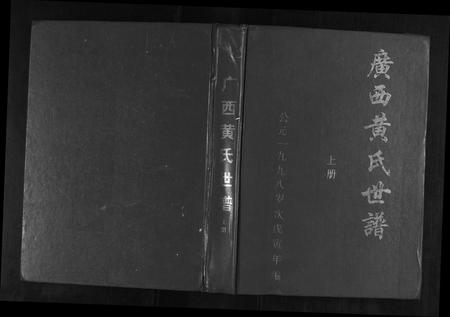 廣西黄氏世譜
上册
公元一九九八岁次戊寅年编
广西黄氏世譜